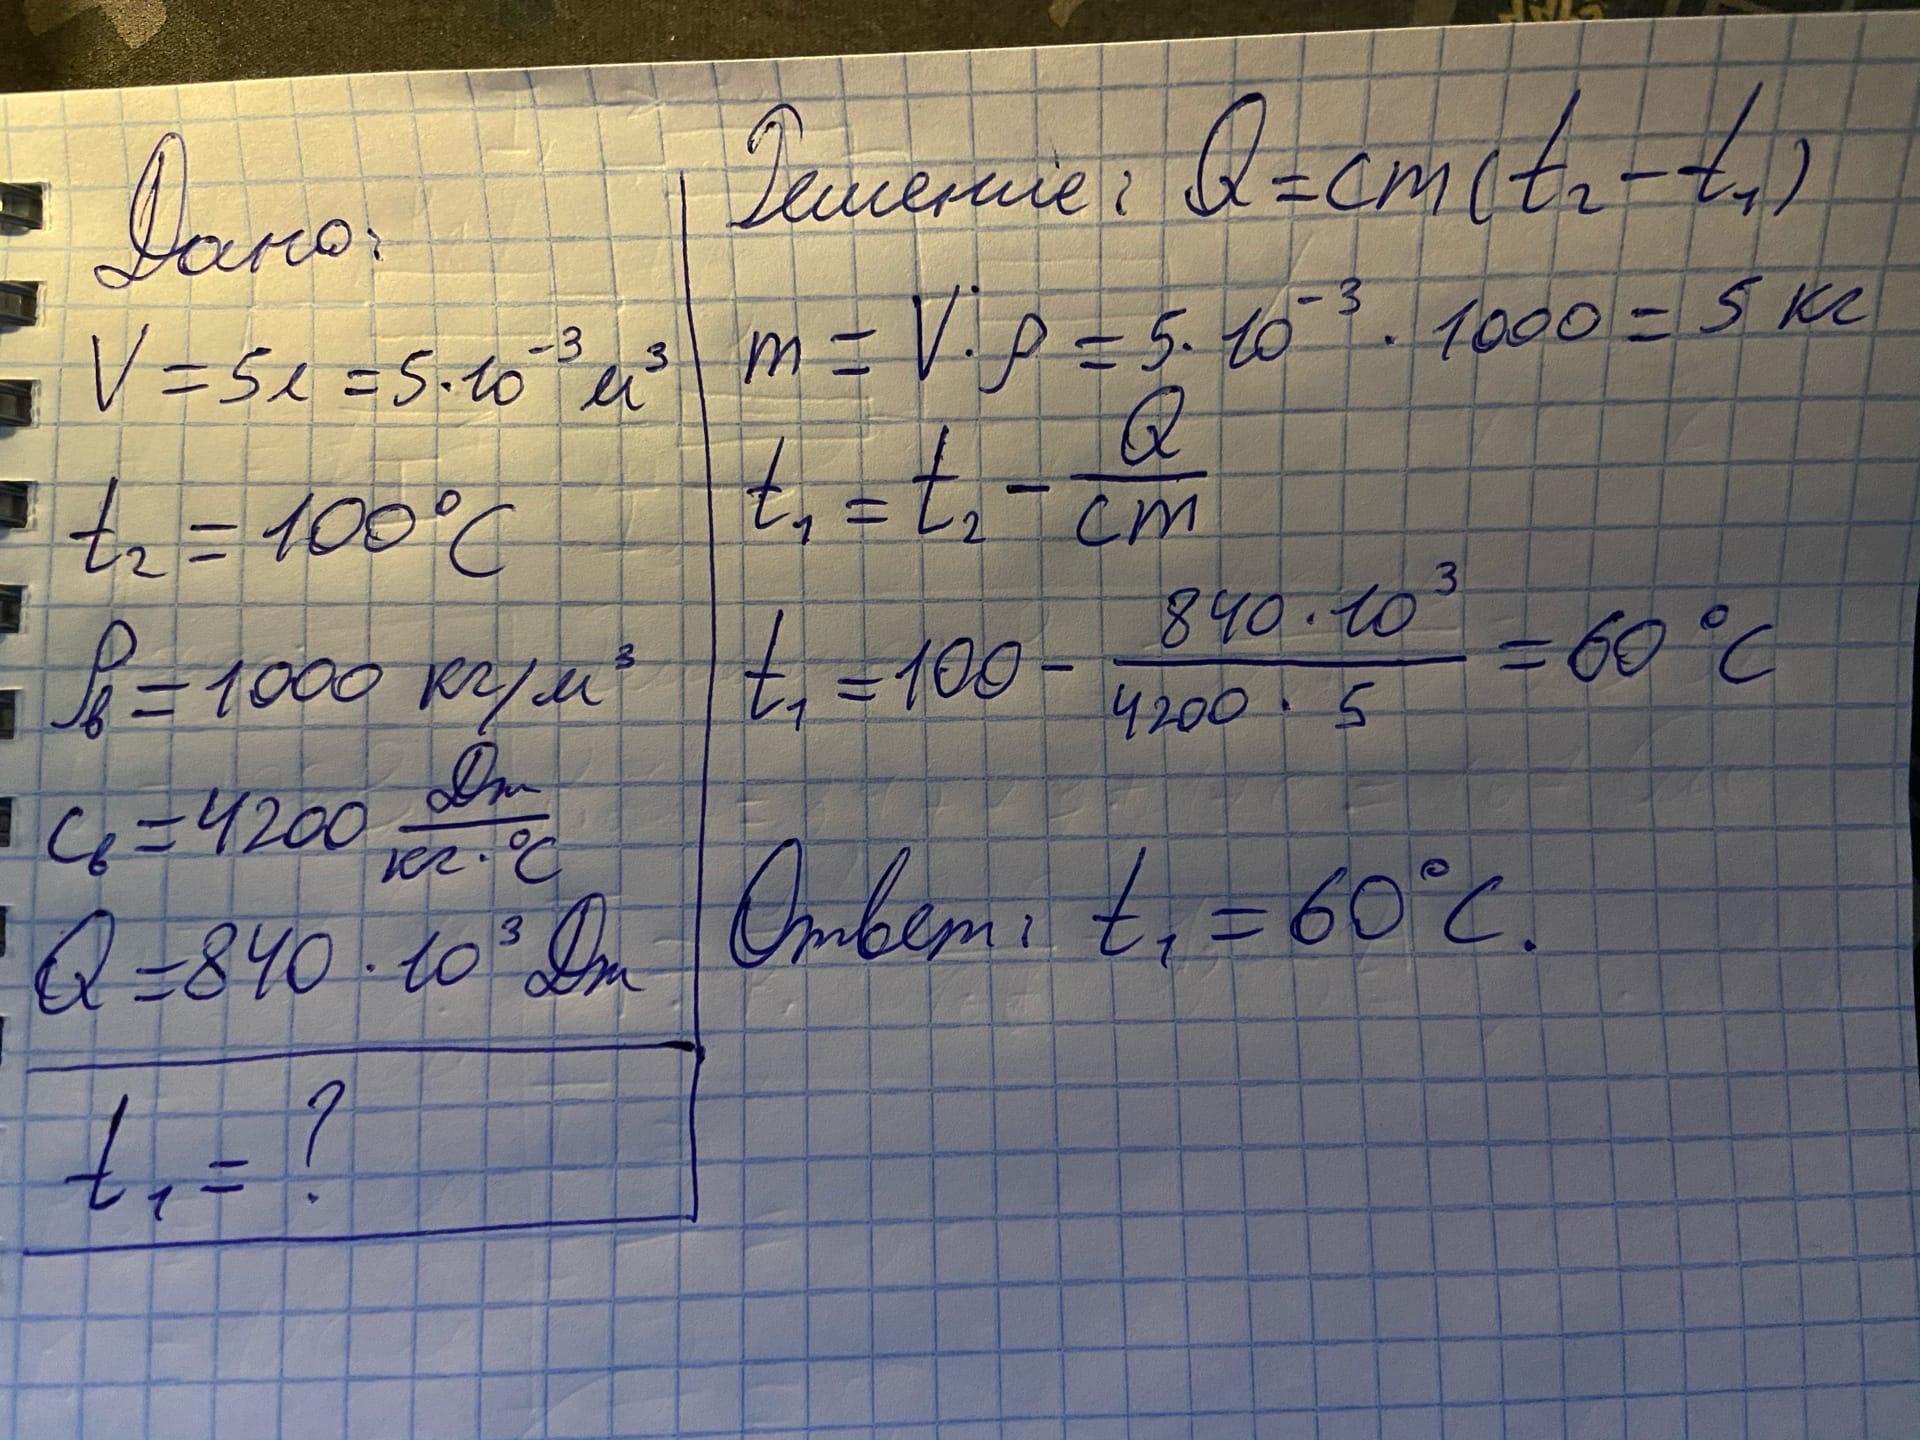 Дано:
V = 5л = 5·10⁻³ м³
t₂ = 100°C
ρв = 1000 кг/м³
cв = 4200 Дж/кг·°C
Q = 840·10³ Дж
t₁ = ?
Решение: Q = cm(t₂ - t₁)
m = V·ρ = 5·10⁻³·1000 = 5 кг
t₁ = t₂ - Q/cm
t₁ = 100 - 840·10³/4200·5 = 60°C
Ответ: t₁ = 60°C.